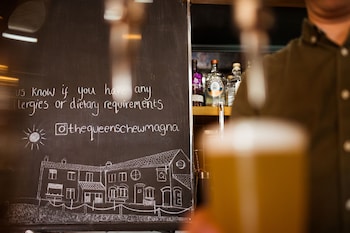 us know if you have any
llergies or dietary requirements
@thequeenschewmagna